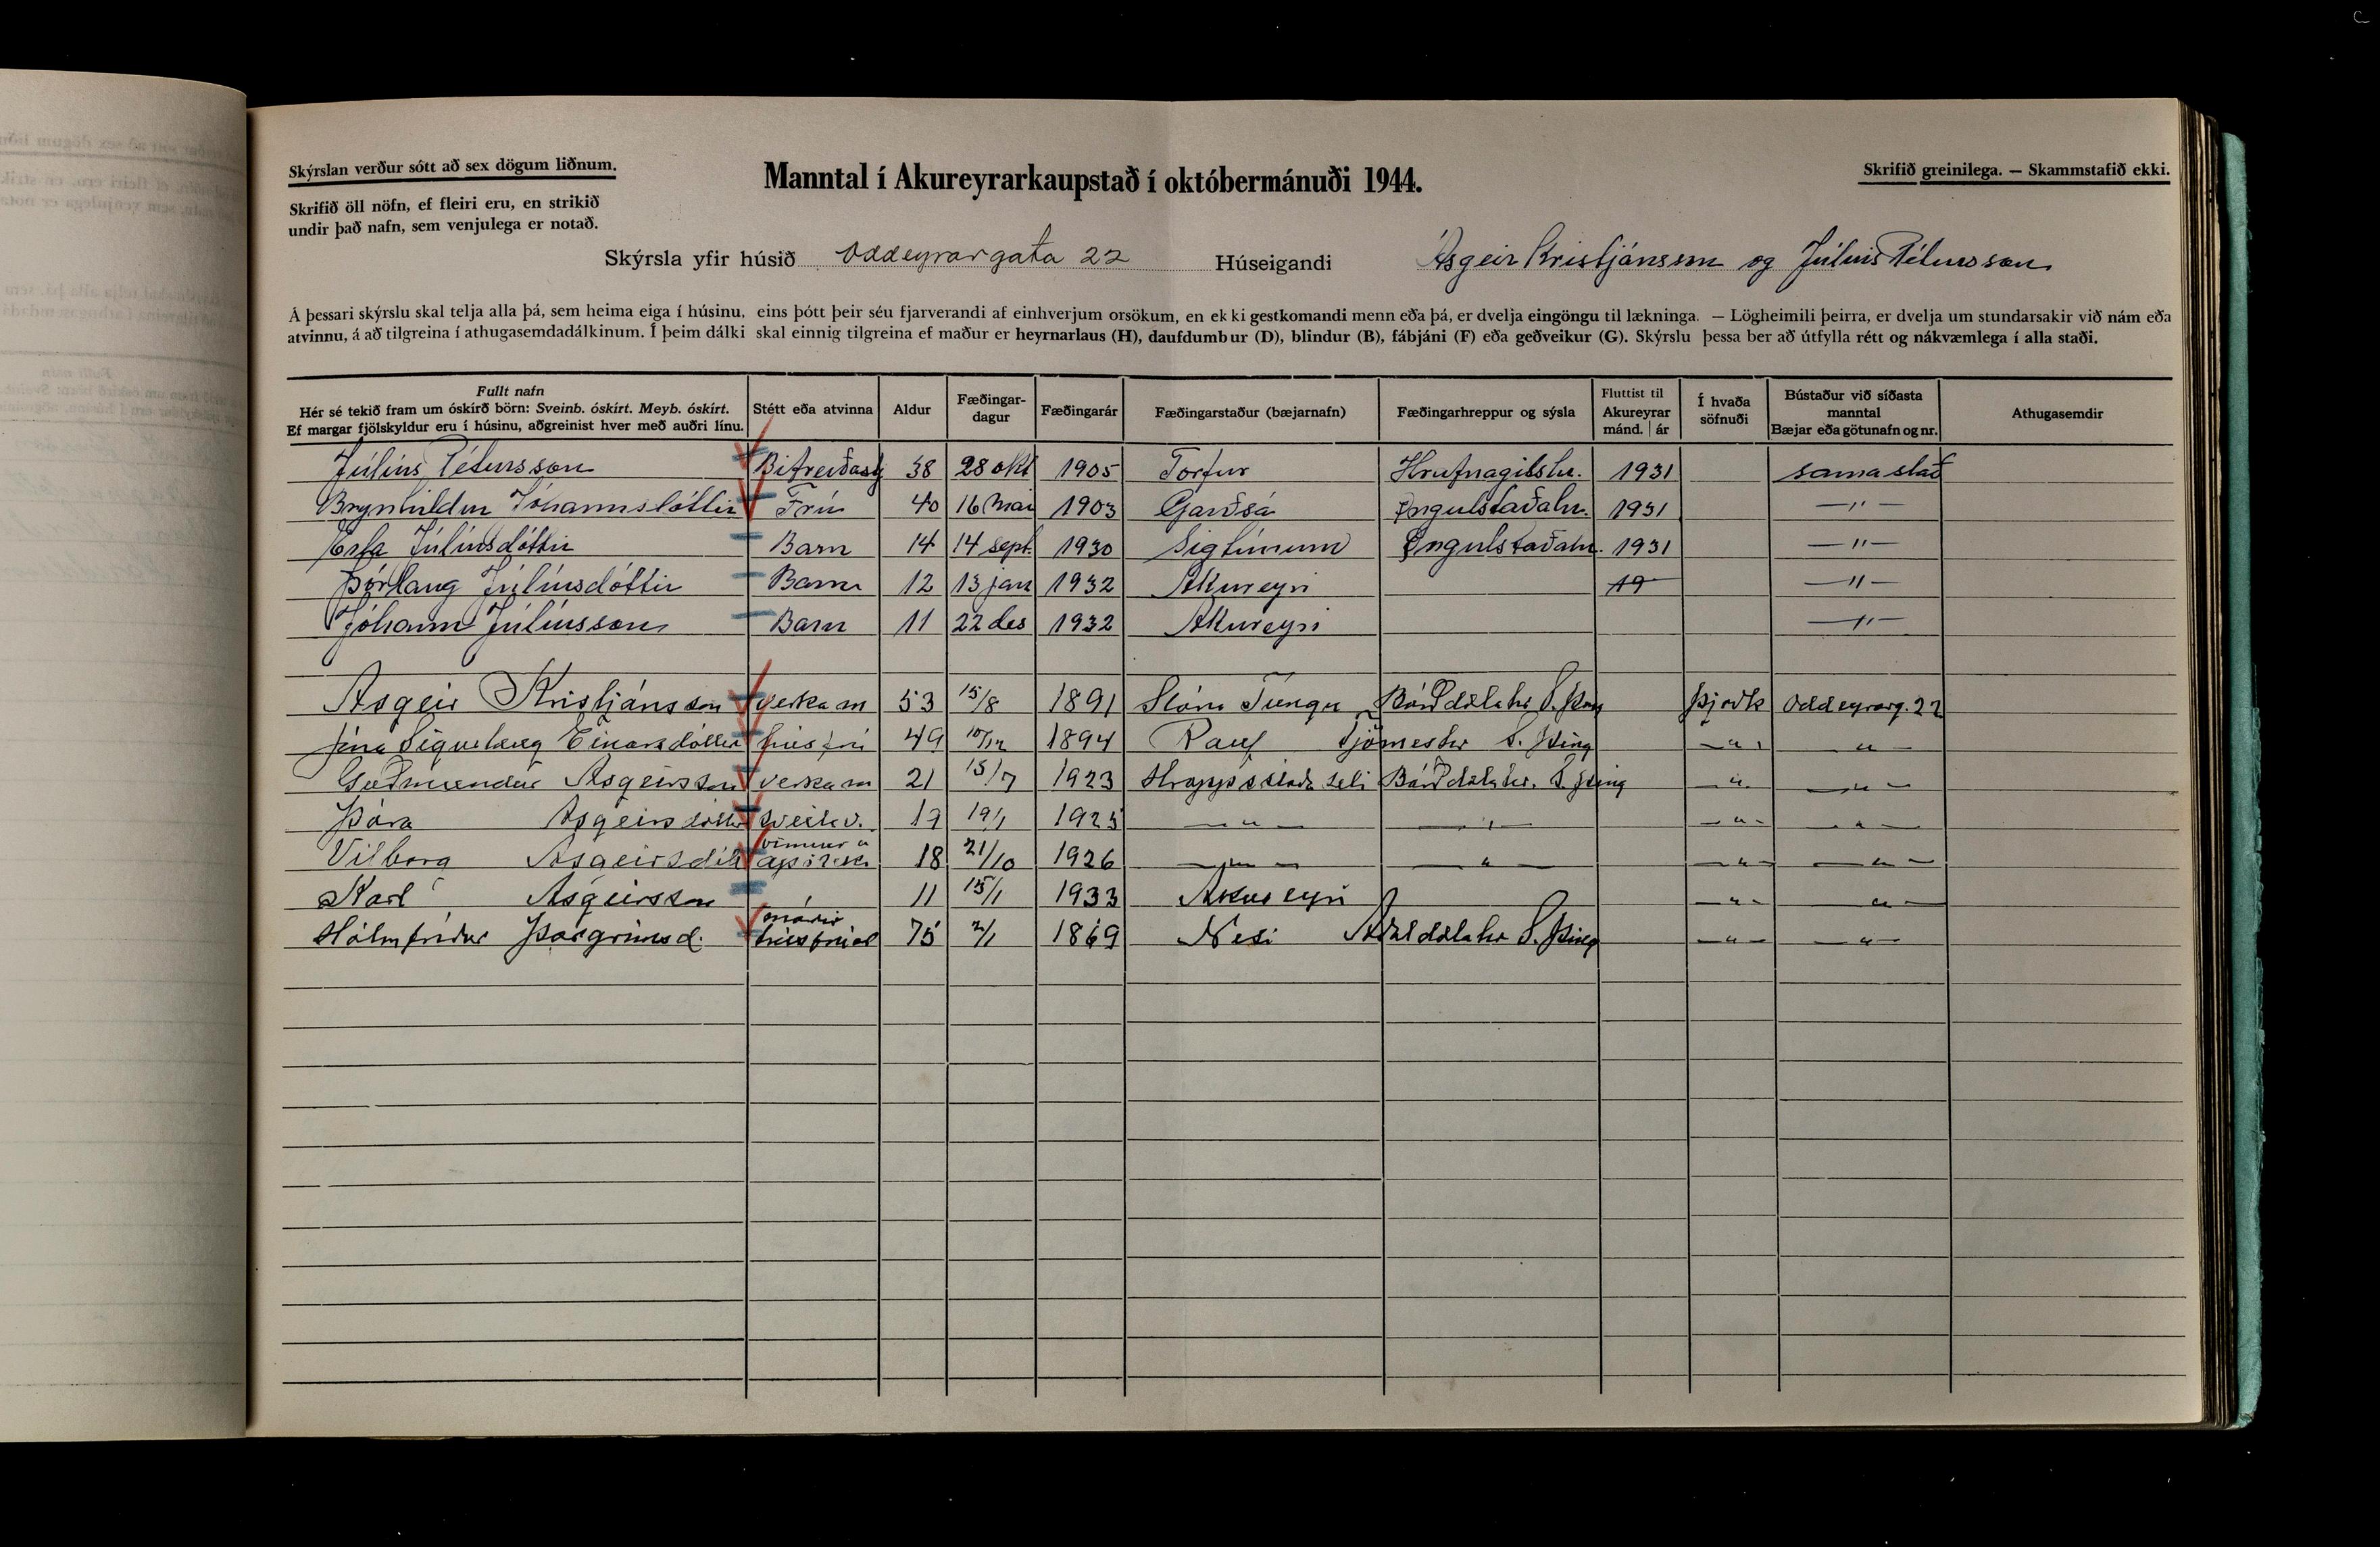 Skýrslan verður sótt að sex dögum liðnum.
Manntal í Akureyrarkaupstað í októbermánuði 1944.
Skrifið greinilega. — Skammstafið ekki.
Skrifið öll nöfn, ef fleiri eru, en strikið
undir það nafn, sem venjulega er notað.
Skýrsla yfir húsið Oddeyrargata 22 Húseigandi Ásgeir Kristjánsson og Júlíus Pétursson
Á þessari skýrslu skal telja alla þá, sem heima eiga í húsinu, eins þótt þeir séu fjarverandi af einhverjum orsökum, en ekki gestkomandi menn eða þá, er dvelja eingöngu til lækninga. — Lögheimili þeirra, er dvelja um stundarsakir við nám eða
atvinnu, á að tilgreina í athugasemdadálkinum. Í þeim dálki skal einnig tilgreina ef maður er heyrnarlaus (H), daufdumbur (D), blindur (B), fábjáni (F) eða geðveikur (G). Skýrslu þessa ber að útfylla rétt og nákvæmlega í alla staði.
Fullt nafn
Hér sé tekið fram um óskírð börn: Sveinb. óskírt. Meyb. óskírt.
Ef margar fjölskyldur eru í húsinu, aðgreinist hver með auðri línu.
Stétt eða atvinna
Aldur
Fæðingar-
dagur
Fæðingarár
Fæðingarstaður (bæjarnafn)
Fæðingarhreppur og sýsla
Fluttist til
Akureyrar
mánd. | ár
Í hvaða
söfnuði
Bústaður við síðasta
manntal
Bæjar eða götunafn og nr.
Athugasemdir
Júlíus Pétursson Bifreiðastj 38 28 okt 1905 Torfur Hrafnagilshr. 1931 sama stað
Brynhildur Jóhannsdóttir Frú 40 16 mai 1903 Garðsá Öngulstaðahr. 1931 —"—
Erla Júlíusdóttir Barn 14 14 sept. 1930 Sigtúnum Öngulstaðahr. 1931 —"—
Þórlaug Júlíusdóttir Barn 12 13 jan 1932 Akureyri 19 —"—
Jóhann Júlíusson Barn 11 22 des 1932 Akureyri —"—
Asgeir Kristjánsson verkam 53 15/8 1891 Stóru Tungu Bárðdælahr S. Þing Þjóðk Oddeyrarg. 22
Sigurlaug Einarsdóttir húsfrú 49 10/12 1894 Rauf Tjörneshr S. Þing —"— —"—
Guðmundur Asgeirsson verkam 21 15/7 1923 Hrappsstaðaseli Bárðdælahr. S. Þing —"— —"—
Þóra Asgeirsdóttir 19 19/1 1925 —"— —"— —"— —"—
vinnur á
Vilborg Asgeirsdótt 18 21/10 1926 —"— —"— —"— —"—
Karl Asgeirsson 11 15/1 1933 Akureyri —"— —"—
móðir
Hólmfríður Þorgrímsd. húsfrúar 75 2/1 1869 Nesi Aðaldælahr S. Þing —"— —"—